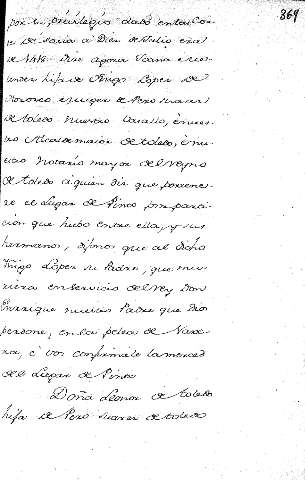 869
por su privilegio dado en las Cor-
tes de Soria a Diez de Julio era
de 1418. Dice agora Juana
hija de Iñigo Lopez de
Horozco, e muger de Pero Suarez
de toledo nuestro vasallo, e nues-
tro Alcalde maior de toledo, e nu-
estro notario mayor del Reyno
de toledo a quien diz que pertenes-
ce el Lugar de Pinto por parti-
cion que hubo entre ella, y sus
hermanos, dimos que al dicho
Iñigo Lopez su Padre, que mu-
riera en servicio del Rey Don
Enrrique nuestro Padre que Dios
perdone, en la pelea de Naxe-
ra, e vos confirmase la merced
del Lugar de Pinto
Doña Leonor de toledo
hija de Pero Suarez de toledo